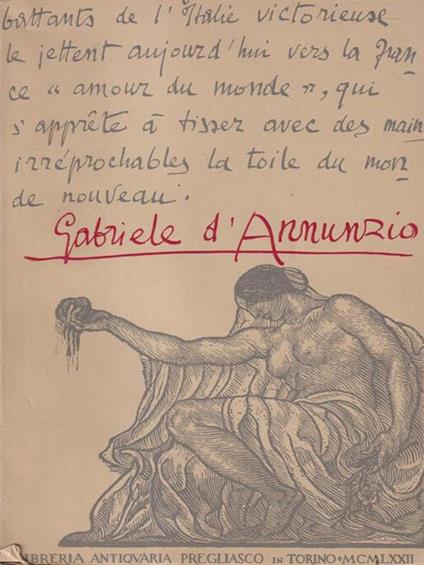 battants de l'Italie victorieuse
le jettent aujourd'hui vers la Fran
ce “amour du monde”, qui
s'apprête à tisser avec des main
irréprochables la toile du mon
de nouveau.
Gabriele d'Annunzio
LIBRERIA ANTIQVARIA PREGLIASCO IN TORINO • MCMLXXII